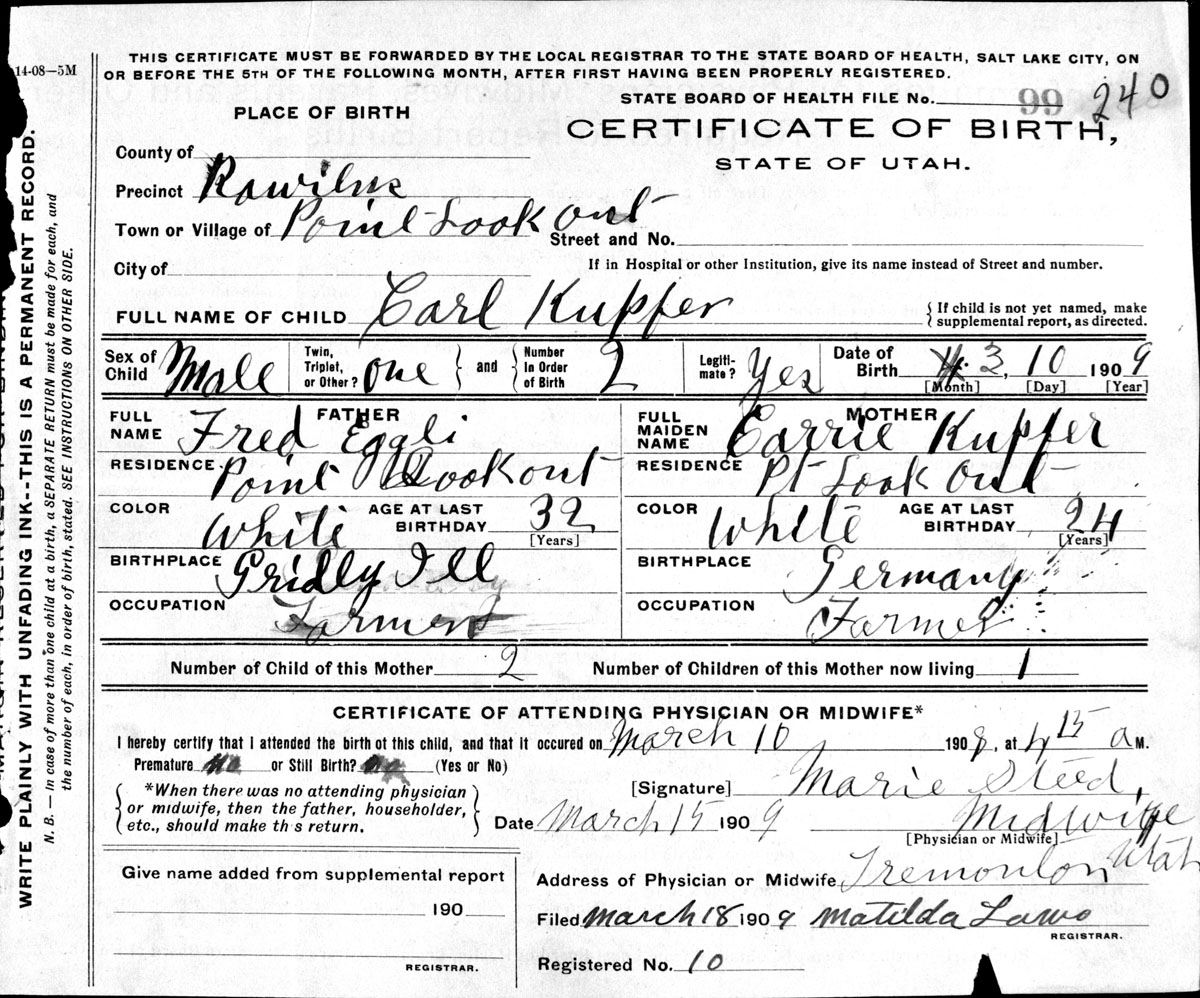 14-08—5M
THIS CERTIFICATE MUST BE FORWARDED BY THE LOCAL REGISTRAR TO THE STATE BOARD OF HEALTH, SALT LAKE CITY, ON
OR BEFORE THE 5TH OF THE FOLLOWING MONTH, AFTER FIRST HAVING BEEN PROPERLY REGISTERED.
WRITE PLAINLY WITH UNFADING INK--THIS IS A PERMANENT RECORD.
N. B.—In case of more than one child at a birth, a SEPARATE RETURN must be made for each, and
the number of each, in order of birth, stated. SEE INSTRUCTIONS ON OTHER SIDE.
STATE BOARD OF HEALTH FILE No. 99 240
PLACE OF BIRTH
CERTIFICATE OF BIRTH,
STATE OF UTAH.
County of
Precinct
Town or Village of Point Look Out
Street and No.
City of
If in Hospital or other Institution, give its name instead of Street and number.
FULL NAME OF CHILD Carl Kupfer
{ If child is not yet named, make
supplemental report, as directed.
Sex of Child Male
Twin, Triplet, or Other? one } and { Number In Order of Birth 2
Legiti-mate? Yes
Date of Birth 3, 10 1909
[Month] [Day] [Year]
FATHER
FULL NAME Fred Eggli
RESIDENCE Point Lookout
COLOR White AGE AT LAST BIRTHDAY 32
[Years]
BIRTHPLACE Gridly Ill
OCCUPATION Farmer
MOTHER
FULL MAIDEN NAME Carrie Kupfer
RESIDENCE Pt Look Out
COLOR White AGE AT LAST BIRTHDAY 24
[Years]
BIRTHPLACE Germany
OCCUPATION Farmer
Number of Child of this Mother 2 Number of Children of this Mother now living 1
CERTIFICATE OF ATTENDING PHYSICIAN OR MIDWIFE*
I hereby certify that I attended the birth of this child, and that it occured on March 10 1909, at 4 15 a M.
Premature No or Still Birth? No (Yes or No)
{ *When there was no attending physician
or midwife, then the father, householder,
etc., should make th s return. }
[Signature] Marie Steed,
Date March 15 1909 Midwife
[Physician or Midwife]
Give name added from supplemental report
190
REGISTRAR.
Address of Physician or Midwife Tremonton Utah
Filed March 18 1909 Matilda
REGISTRAR.
Registered No. 10